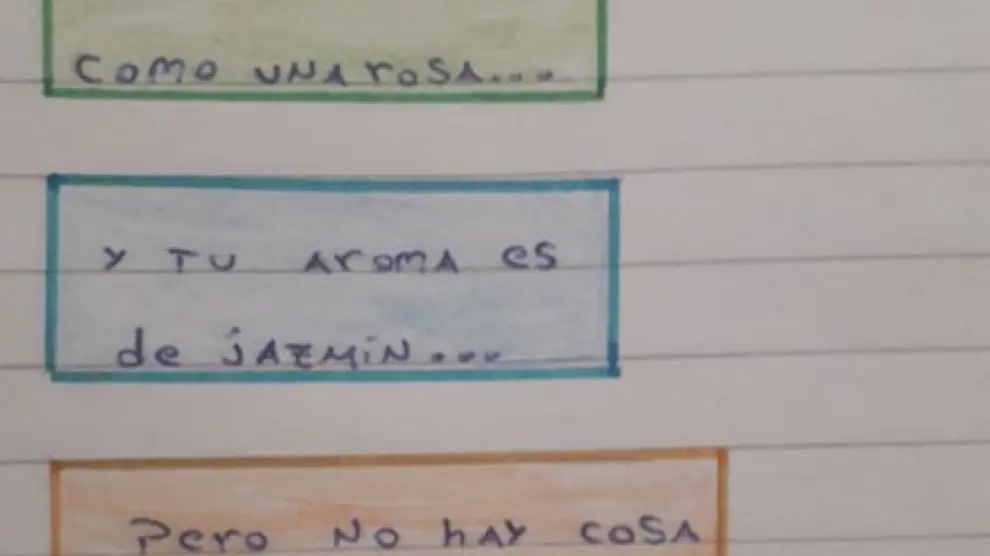 Como UNA rosA...
y TU AromA es
de jAzMiN...
Pero NO hAy COSA